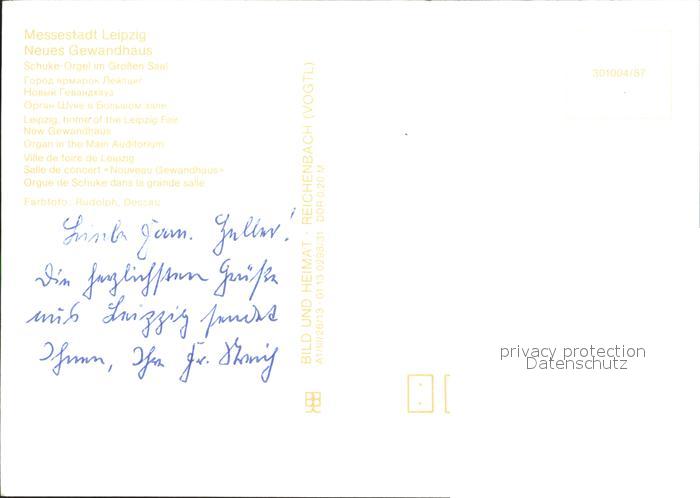 Messestadt Leipzig
Neues Gewandhaus
Schuke-Orgel im Großen Saal
Город ярмарок Лейпциг
Новый Гевандхауз
Орган Шуке в Большом зале
Leipzig, home of the Leipzig Fair
New Gewandhaus
Organ in the Main Auditorium
Ville de foire de Leipzig
Salle de concert «Nouveau Gewandhaus»
Orgue de Schuke dans la grande salle
Farbfoto: Rudolph, Dessau
Liebe Fam. Heller!
Die herzlichsten Grüße
aus Leipzig sendet
Ihnen, Ihr Fr.
BILD UND HEIMAT · REICHENBACH (VOGTL)
DDR 0,20 M
301004/87
privacy protection
Datenschutz